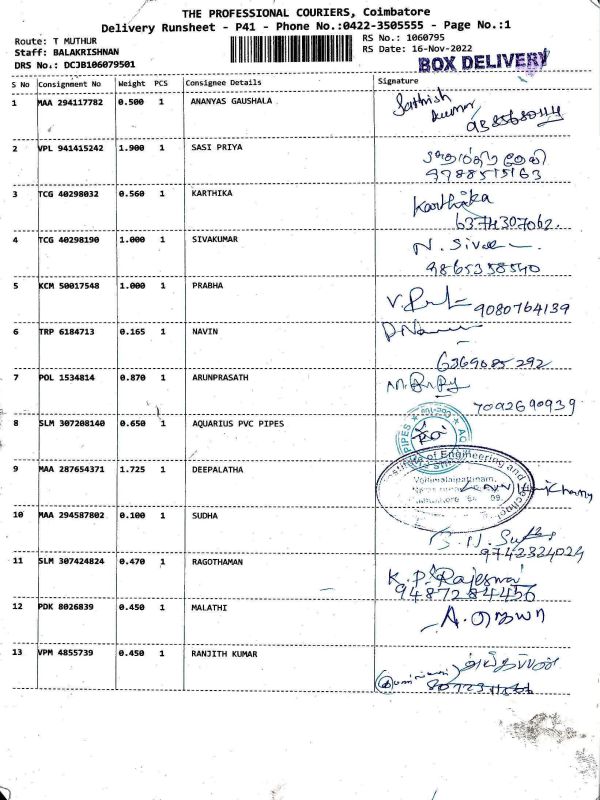 THE PROFESSIONAL COURIERS, Coimbatore
Delivery Runsheet - P41 - Phone No.:0422-3505555 - Page No.:1
Route: T MUTHUR
RS No.: 1060795
Staff: BALAKRISHNAN
RS Date: 16-Nov-2022
DRS No.: DCJB106079501
BOX DELIVERY
S No Consignment No Weight PCS Consignee Details Signature
1 MAA 294117782 0.500 1 ANANYAS GAUSHALA Sathish
kumar
2 VPL 941415242 1.900 1 SASI PRIYA
9788515163
3 TCG 40298032 0.560 1 KARTHIKA Karthika
6374307062.
4 TCG 40298190 1.000 1 SIVAKUMAR N. Siva
9865358540
5 KCM 50017548 1.000 1 PRABHA
9080764139
6 TRP 6184713 0.165 1 NAVIN
6369085292
7 POL 1534814 0.870 1 ARUNPRASATH
7092690939
8 SLM 307208140 0.650 1 AQUARIUS PVC PIPES
PIPES
9 MAA 287654371 1.725 1 DEEPALATHA
Institute of Engineering and
10 MAA 294587802 0.100 1 SUDHA
9742324024
11 SLM 307424824 0.470 1 RAGOTHAMAN K. P. Rajeswai
9487284456
12 PDK 8026839 0.450 1 MALATHI
13 VPM 4855739 0.450 1 RANJITH KUMAR